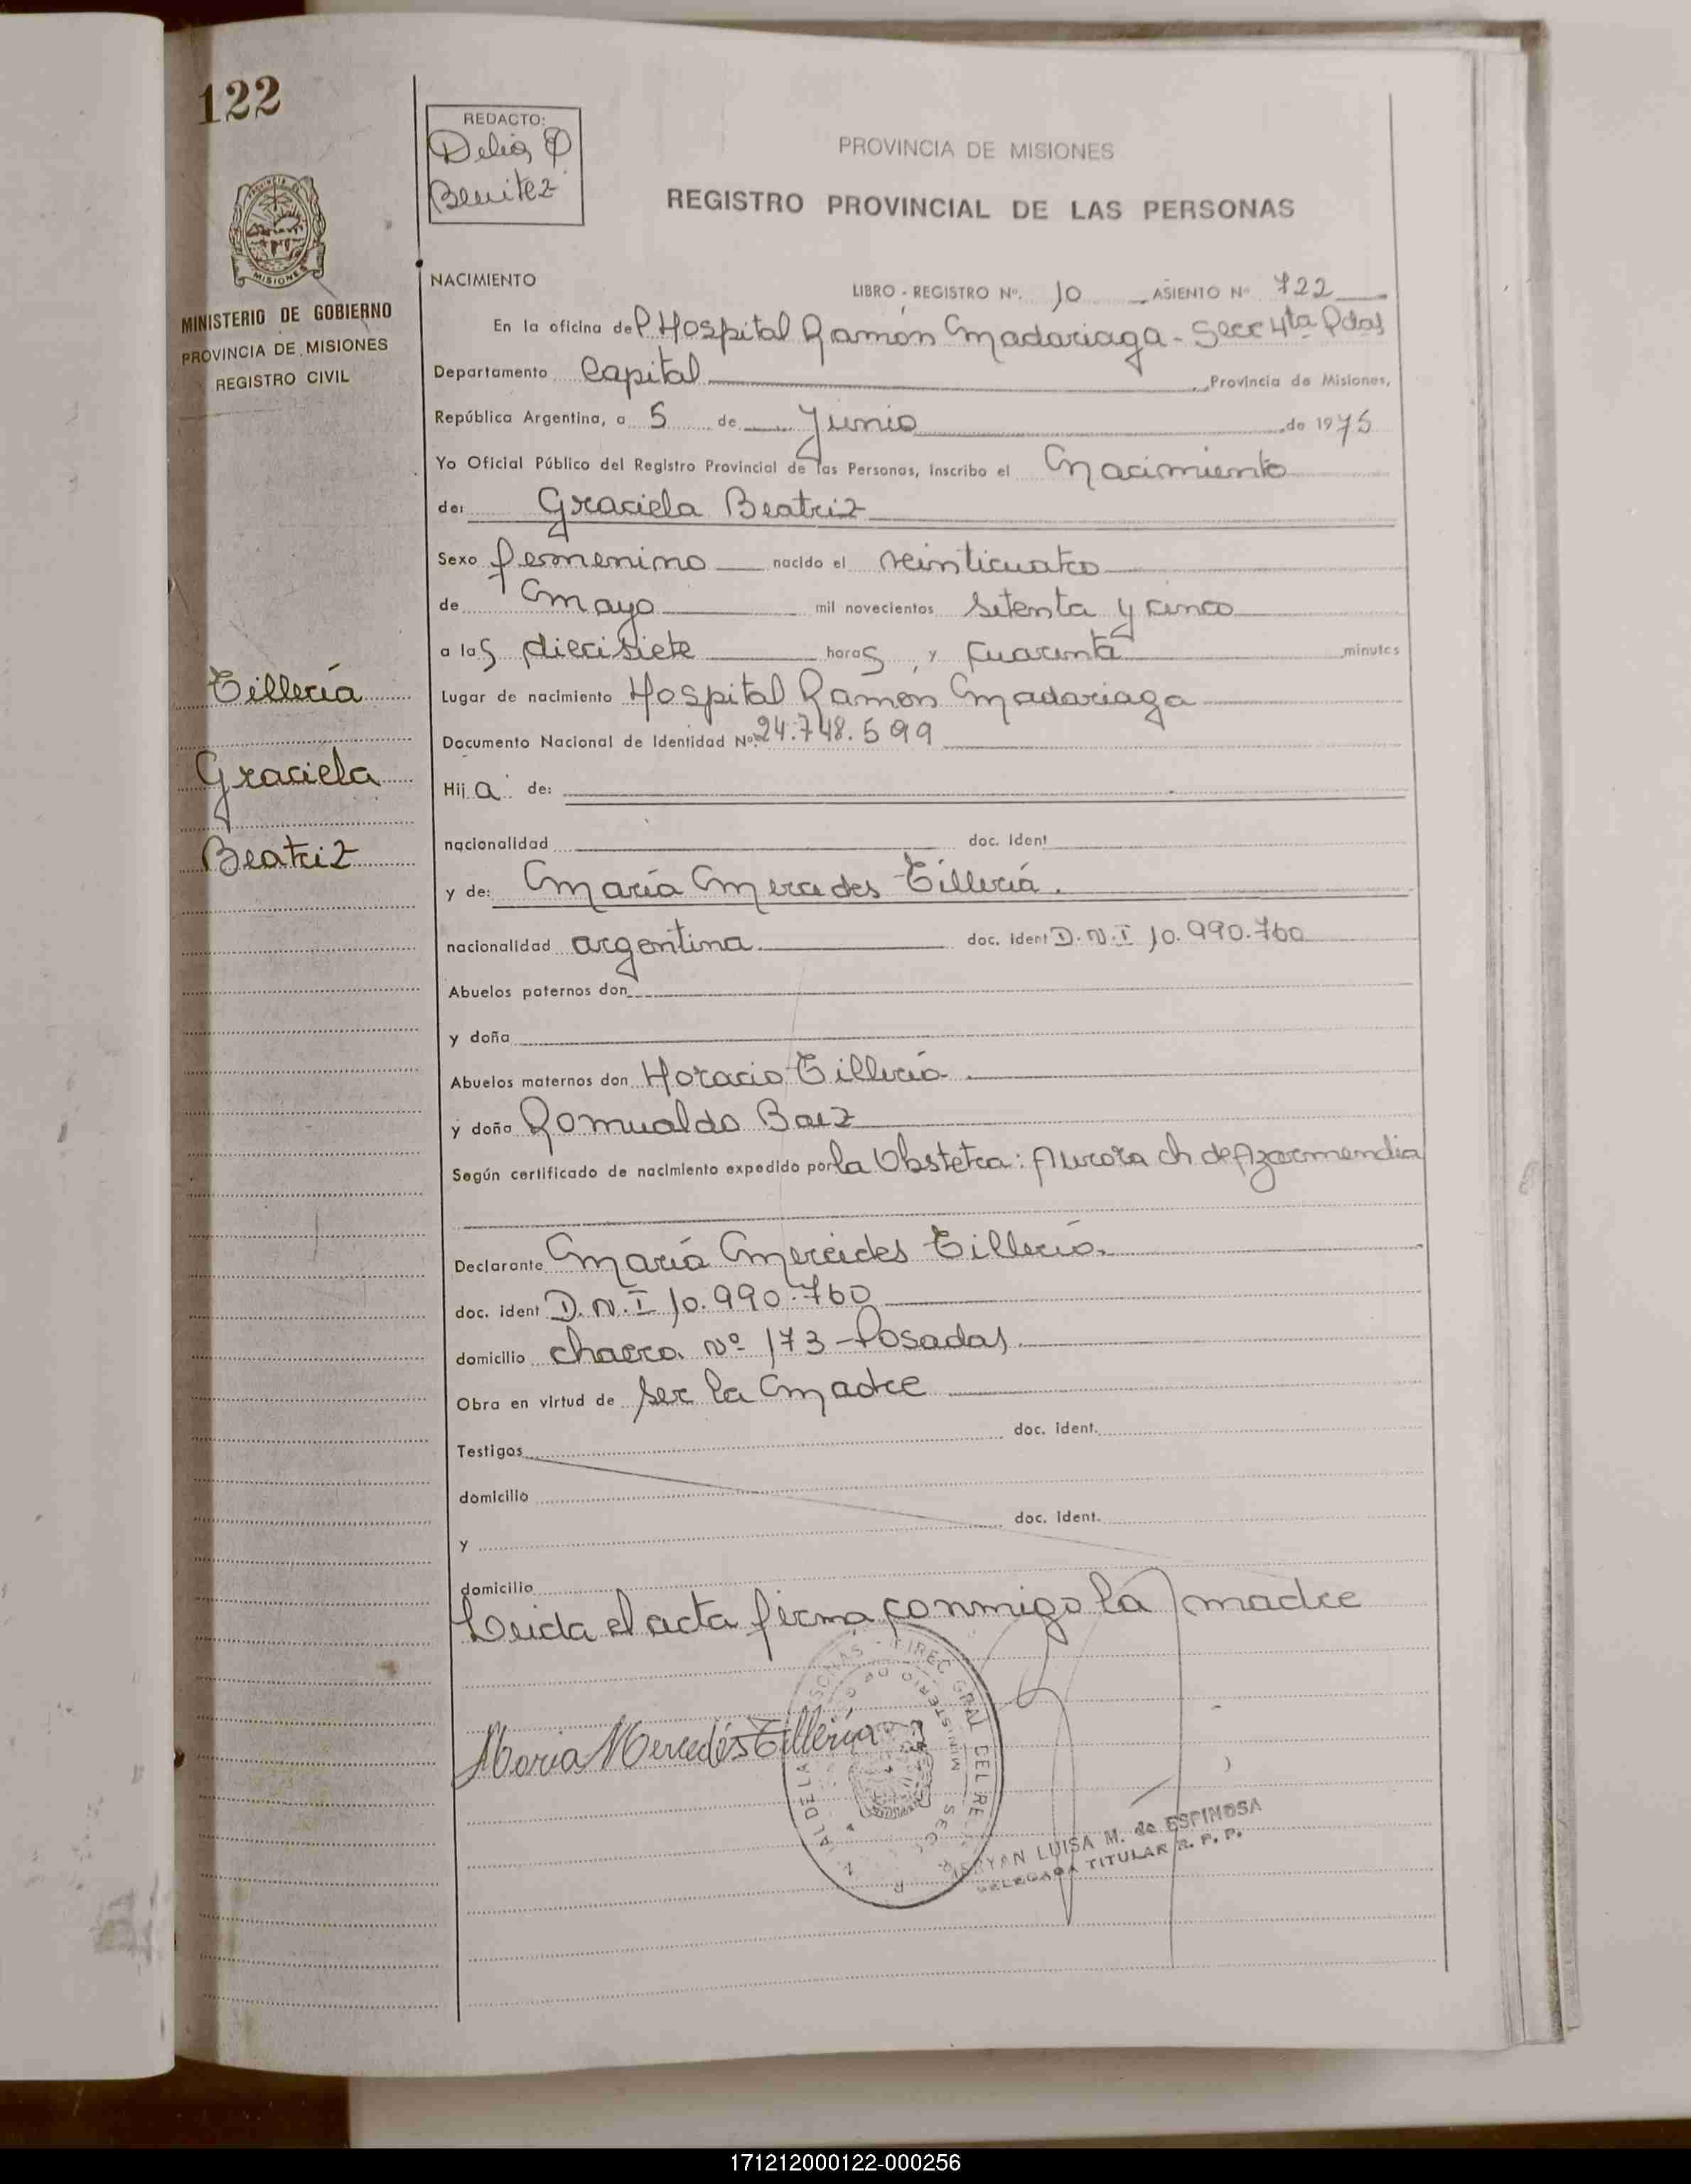 122
REDACTO:
Delia
Benitez
PROVINCIA DE MISIONES
REGISTRO PROVINCIAL DE LAS PERSONAS
MISIONES
MINISTERIO DE GOBIERNO
PROVINCIA DE MISIONES
REGISTRO CIVIL
NACIMIENTO
LIBRO - REGISTRO Nº. 10 ASIENTO Nº 722
En la oficina del Hospital Ramón Madariaga - Secc 4ta Pdas
Departamento Capital Provincia de Misiones,
República Argentina, a 5 de Junio de 1975
Yo Oficial Público del Registro Provincial de las Personas, inscribo el Nacimiento
de: Graciela Beatriz
Sexo femenino nacido el veinticuatro
de Mayo mil novecientos setenta y cinco
a las diecisiete horas y cuarenta minutos
Tillería
Lugar de nacimiento Hospital Ramón Madariaga
Documento Nacional de Identidad Nº. 24.748.599
Graciela
Hija de:
Beatriz
nacionalidad doc. Ident
y de: María Mercedes Tillería.
nacionalidad argentina doc. Ident D.N.I 10.990.760
Abuelos paternos don
y doña
Abuelos maternos don Horacio Tillería
y doña Romualda Baez
Según certificado de nacimiento expedido por la Obstetra: Aurora ch de Azarmendia
Declarante María Mercedes Tillería.
doc. ident D.N.I 10.990.760
domicilio chacra Nº 173 - Posadas
Obra en virtud de ser la Madre
Testigos doc. ident.
domicilio
y doc. Ident.
domicilio
Leida el acta firma conmigo la madre
Maria Mercedes Tillería
LUISA M. de ESPINOSA
DELEGADA TITULAR R. P. P.
171212000122-000256